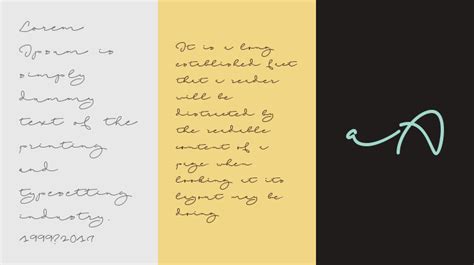 Lorem
Ipsum is
simply
dummy
text of the
printing
and
typesetting
industry.
1999?2017
It is a long
established fact
that a reader
will be
distracted by
the readable
content of a
page when
looking at its
layout may be
doing
aA